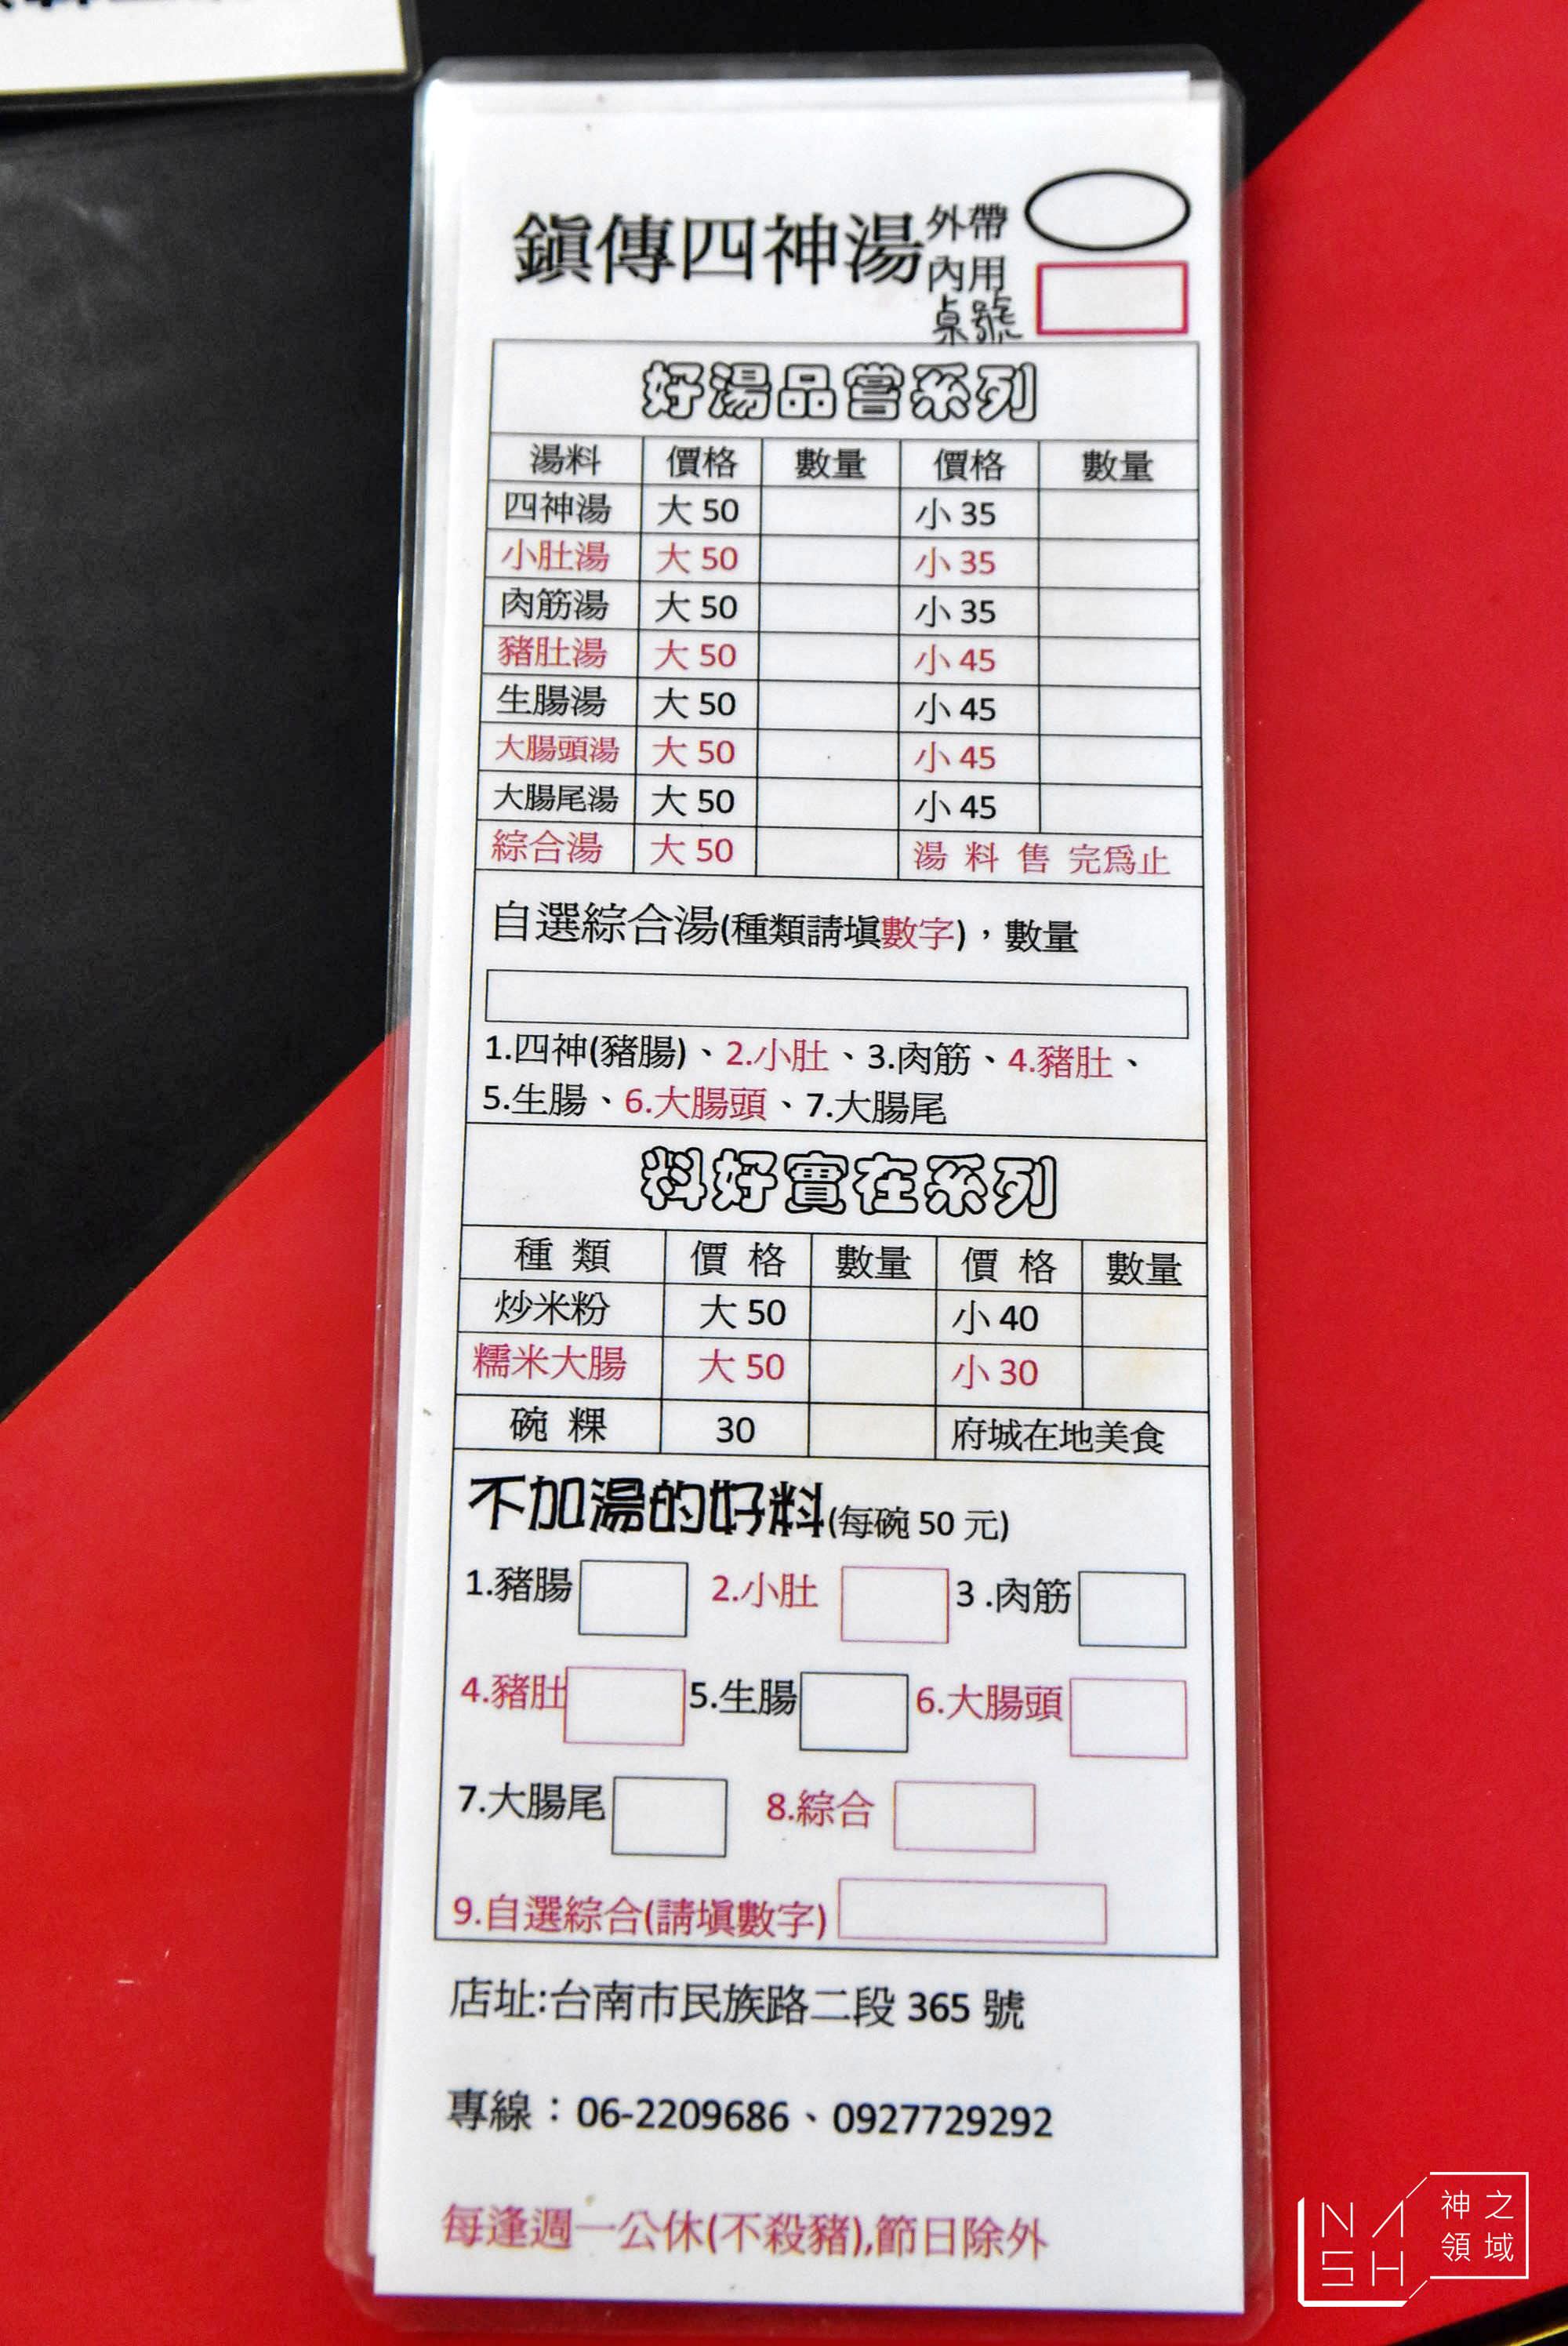 鎭傳四神湯
外帶
內用
桌號
好湯品嘗系列
湯料 價格 數量 價格 數量
四神湯 大 50 小 35
小肚湯 大 50 小 35
肉筋湯 大 50 小 35
豬肚湯 大 50 小 45
生腸湯 大 50 小 45
大腸頭湯 大 50 小 45
大腸尾湯 大 50 小 45
綜合湯 大 50 湯 料 售 完爲止
自選綜合湯(種類請塡數字)，數量
1.四神(豬腸)、2.小肚、3.肉筋、4.豬肚、
5.生腸、6.大腸頭、7.大腸尾
料好實在系列
種 類 價 格 數量 價 格 數量
炒米粉 大 50 小 40
糯米大腸 大 50 小 30
碗 粿 30 府城在地美食
不加湯的好料(每碗 50 元)
1.豬腸 2.小肚 3 .肉筋
4.豬肚 5.生腸 6.大腸頭
7.大腸尾 8.綜合
9.自選綜合(請塡數字)
店址:台南市民族路二段 365 號
專線：06-2209686、0927729292
每逢週一公休(不殺豬),節日除外
NASH
神之
領域